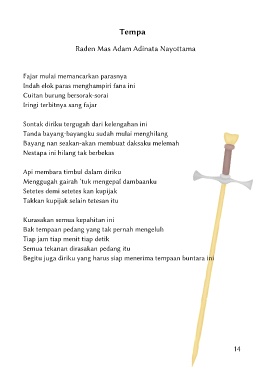 Tempa
Raden Mas Adam Adinata Nayottama
Fajar mulai memancarkan parasnya
Indah elok paras menghampiri fana ini
Cuitan burung bersorak-sorai
Iringi terbitnya sang fajar
Sontak diriku tergugah dari kelengahan ini
Tanda bayang-bayangku sudah mulai menghilang
Bayang nan seakan-akan membuat daksaku melemah
Nestapa ini hilang tak berbekas
Api membara timbul dalam diriku
Menggugah gairah 'tuk mengepal dambaanku
Setetes demi setetes kan kupijak
Takkan kupijak selain tetesan itu
Kurasakan semua kepahitan ini
Bak tempaan pedang yang tak pernah mengeluh
Tiap jam tiap menit tiap detik
Semua tekanan dirasakan pedang itu
Begitu juga diriku yang harus siap menerima tempaan buntara ini
14